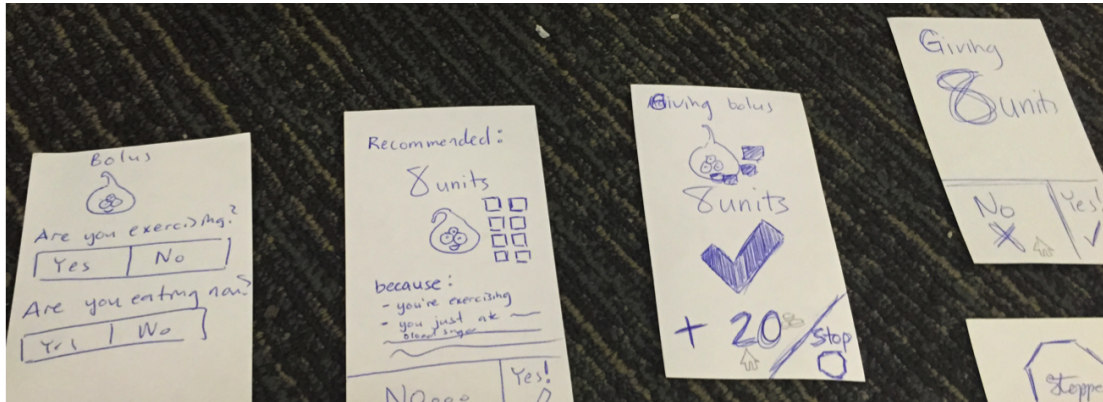 Bolus
Are you exercising?
Yes No
Are you eating now?
Yes No
Recommended:
8 units
because:
- you're exercising
- you just ate
blood sugar
No
Yes!
Giving bolus
8 units
+ 20
Stop
Giving
8 units
No
Yes!
Stoppe